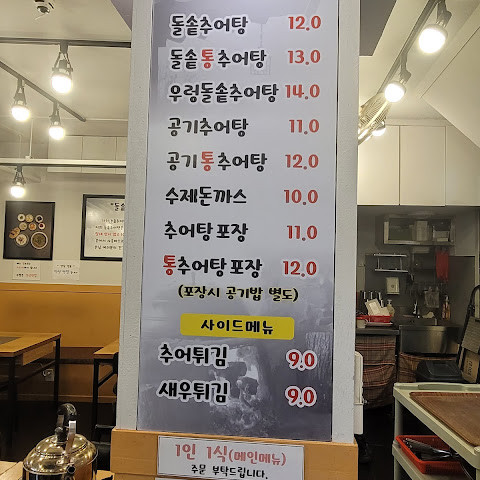 돌솥추어탕 12.0
돌솥통추어탕 13.0
우렁돌솥추어탕 14.0
공기추어탕 11.0
공기통추어탕 12.0
수제돈까스 10.0
추어탕 포장 11.0
통추어탕 포장 12.0
(포장시 공기밥 별도)
사이드메뉴
추어튀김 9.0
새우튀김 9.0
1인 1식(메인메뉴)
주문 부탁드립니다.